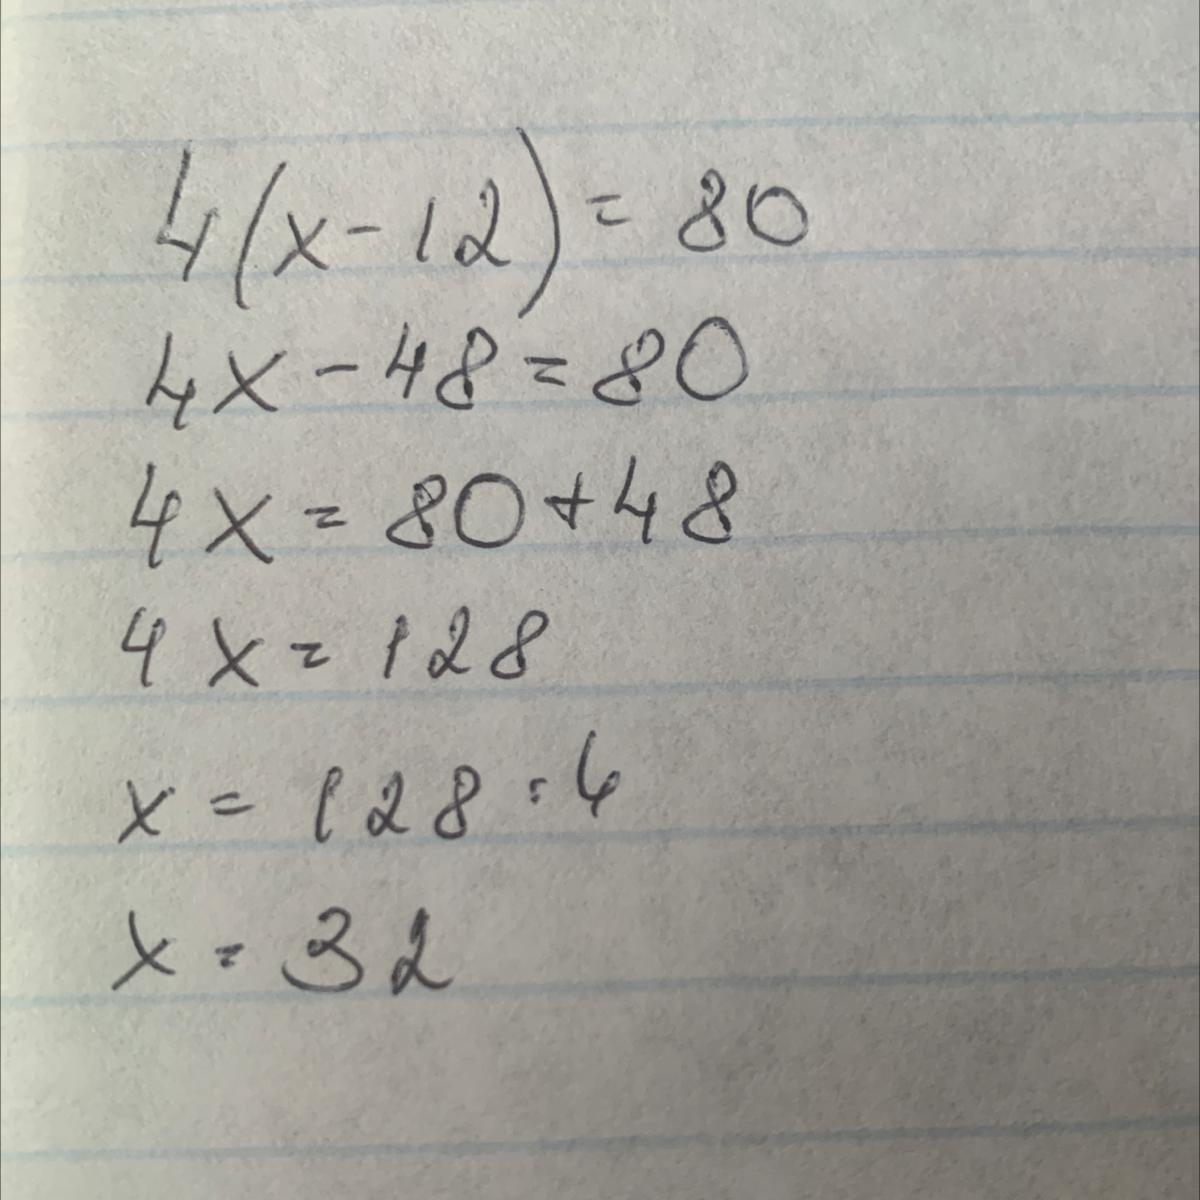 4(x-12)=80
4x-48=80
4x=80+48
4x=128
x=128:4
x=32